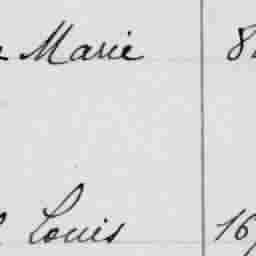 Marie 8
Louis 16